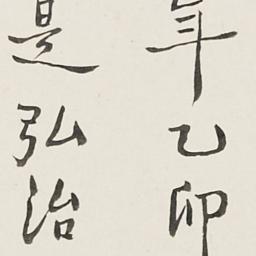 年乙卯
是弘治